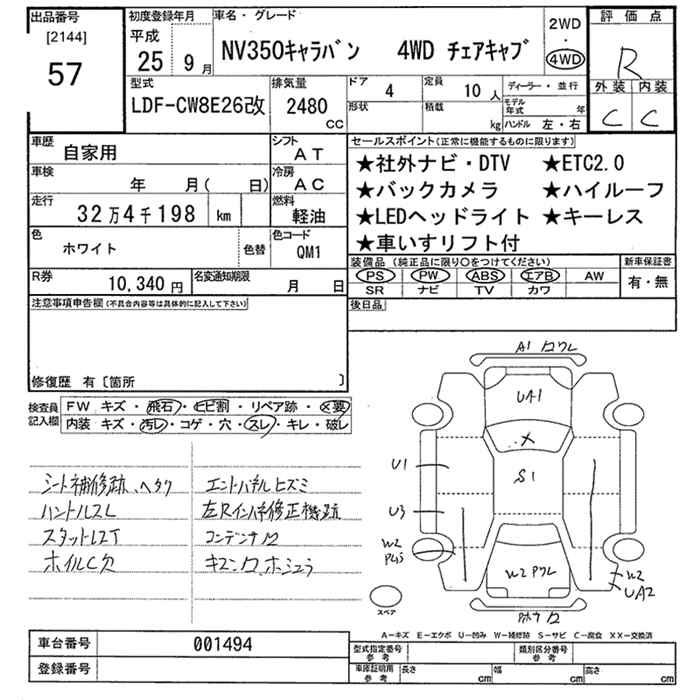 出品番号
[2144]
57
初度登録年月
平成
25 9 月
車名・グレード
NV350キャラバン 4WD チェアキャブ
2WD
・
4WD
評価点
R
外装 内装
C C
型式
LDF-CW8E26改
排気量
2480
CC
ドア
4
定員
10 人
形状
積載
kg
ディーラー・並行
モデル年式 年
ハンドル 左・右
車歴
自家用
シフト
AT
車検
年 月( 日)
冷房
AC
走行
32万4千198 km
燃料
軽油
色
ホワイト
色替
色コード
QM1
R券
10,340 円
名変通知期限
月 日
セールスポイント(正常に機能するものに限ります)
★社外ナビ・DTV ★ETC2.0
★バックカメラ ★ハイルーフ
★LEDヘッドライト ★キーレス
★車いすリフト付
装備品(純正品に限り○をつけてください)
新車保証書
PS PW ABS エアB AW
SR ナビ TV カワ
有・無
後日品
注意事項申告欄(不具合内容等は具体的に記入して下さい)
修復歴 有〔箇所 〕
検査員記入欄
FW キズ・飛石・ヒビ割・リペア跡・×要
内装 キズ・汚レ・コゲ・穴・スレ・キレ・破レ
シート補修跡、ヘタク
ハンドルスレ
スタットレスT
ホイルC欠
エンドパネルヒズミ
左Rインパネ修正機跡
コンデンサ
A1
UA1
×
S1
U1
U3
W2
W2
UA2
スペア
A-キズ E-エクボ U-凹み W-補修跡 S-サビ C-腐食 XX-交換済
車台番号
001494
登録番号
型式指定番号
参考
類別区分番号
参考
車庫証明用
参考
長さ cm
幅 cm
高さ cm